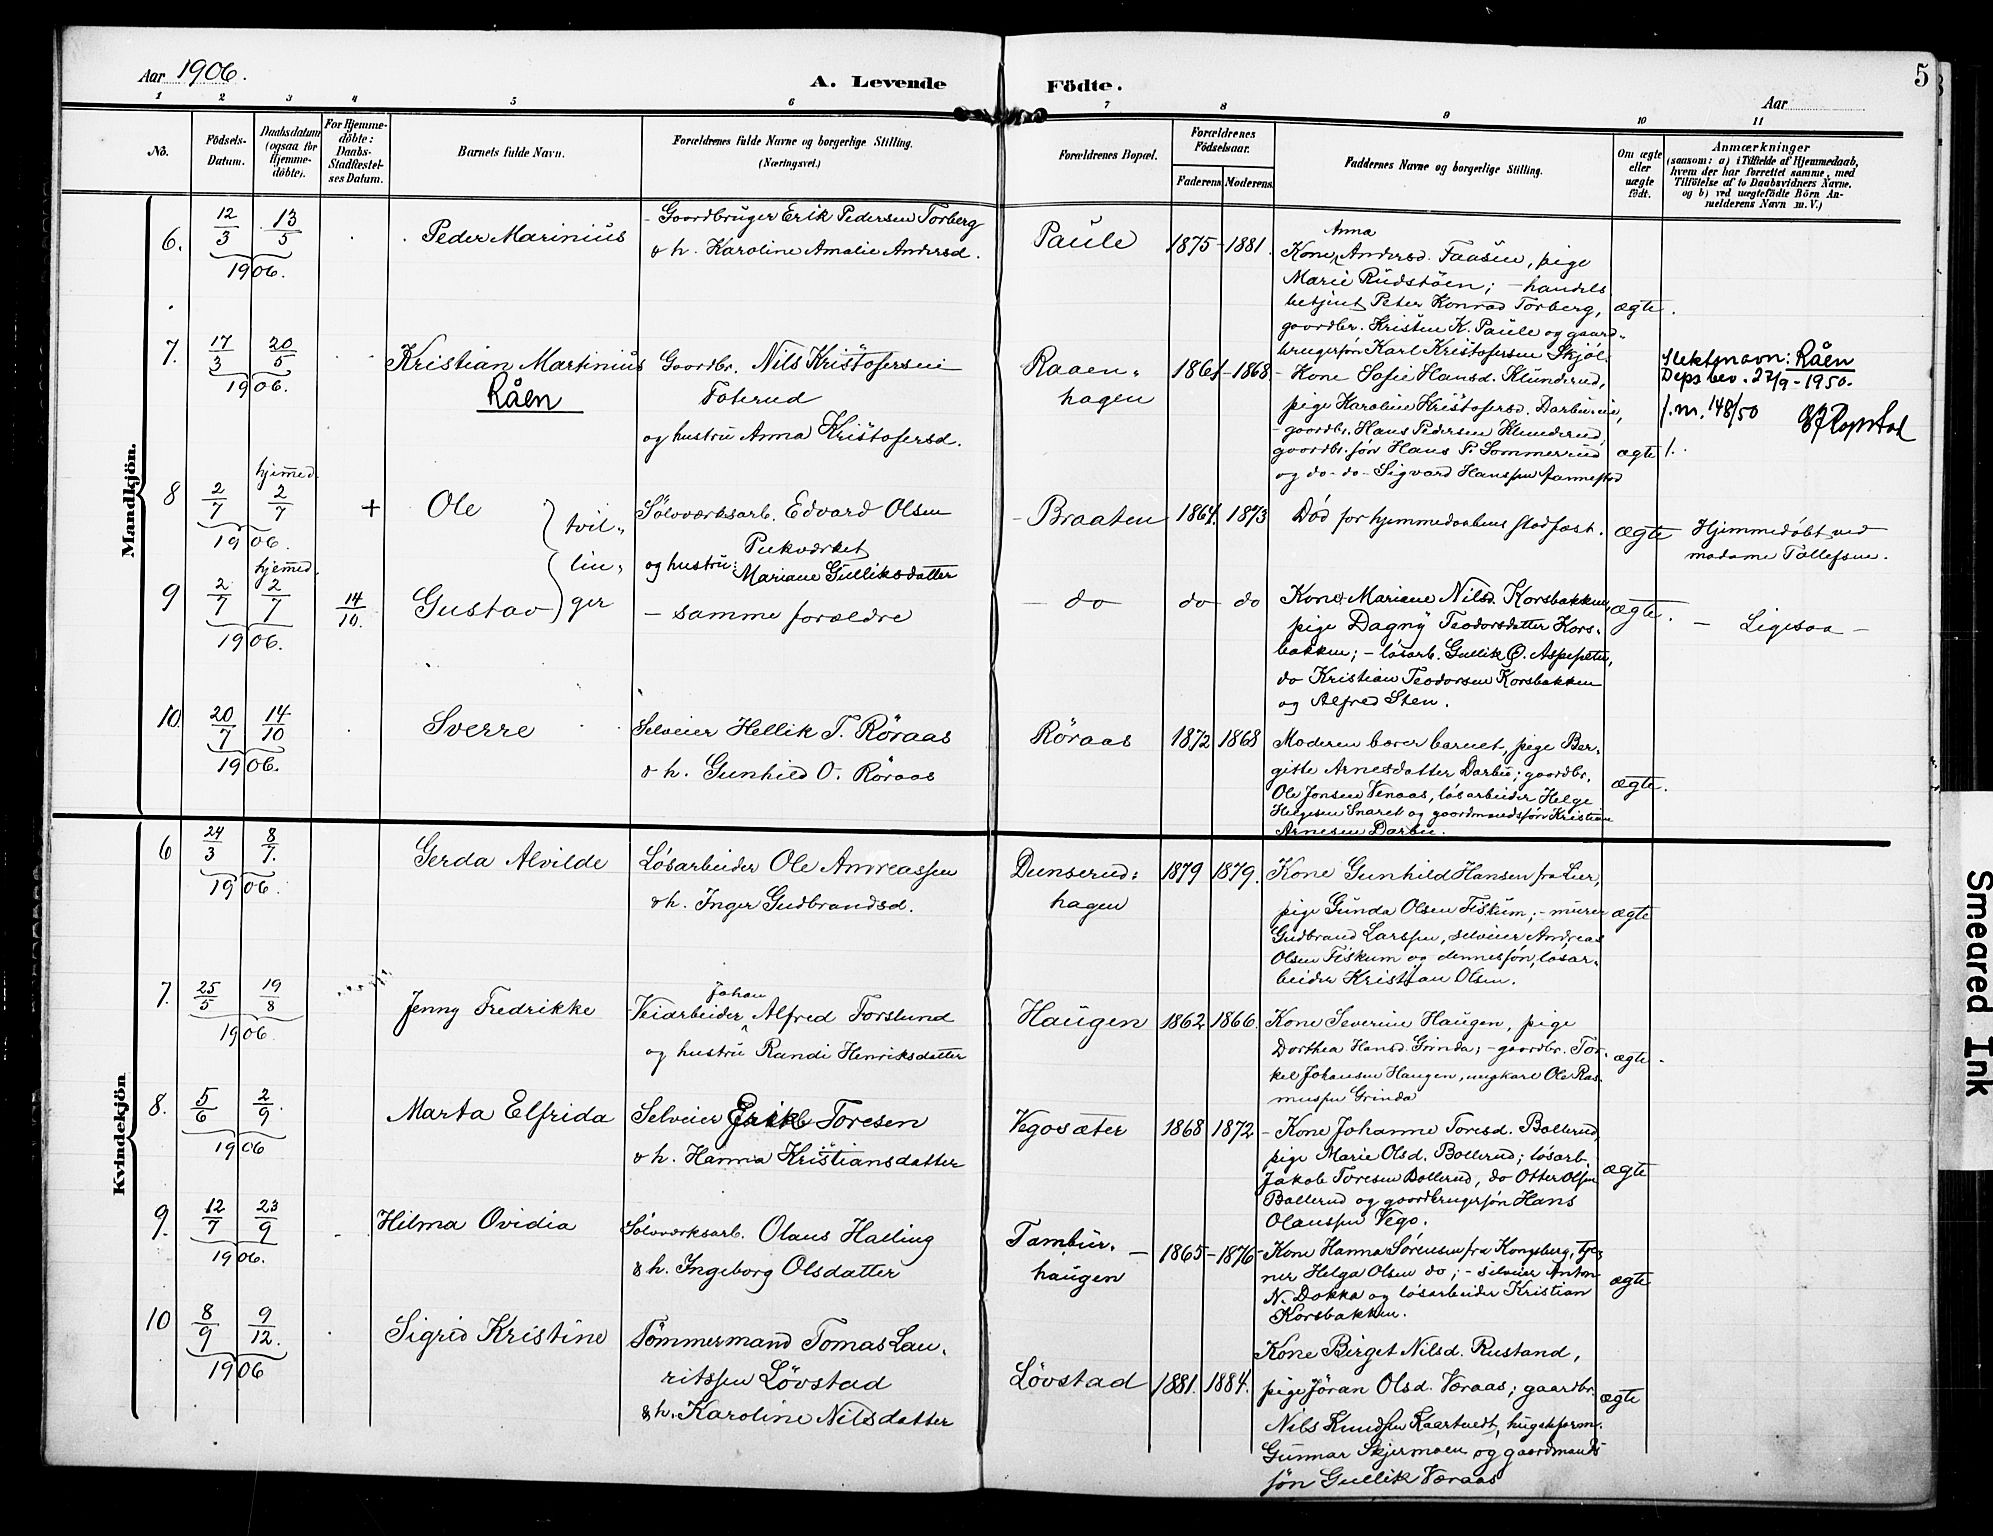 Aar 1906.
A. Levende Födte.
Aar
5
1 2 3 4 5 6 7 8 9 10 11
No.
Födsels-
Datum.
Daabsdatum
(ogsaa for
Hjemme-
döbte).
For Hjemme-
döbte:
Daabs-
Stadfæstel-
ses Datum.
Barnets fulde Navn.
Forældrenes fulde Navne og borgerlige Stilling.
(Næringsvei.)
Forældrenes Bopæl.
Forældrenes
Födselsaar.
Faderens Moderens
Faddernes Navne og borgerlige Stilling.
Om ægte
eller
uægte
födt.
Anmærkninger
(saasom: a) i Tilfælde af Hjemmedaab,
hvem der har forrettet samme, med
Tilföielse af to Daabsvidners Navne.
og b) ved uægtefödte Börn An-
melderens Navn m. V.)
Mandkjön.
6. 12/3 13/5
1906.
Peder Marinius
Goordbruger Erik Pedersen Torberg
& h. Karoline Amalie Andersd.
Paule
1875 - 1881.
Anna
Kone Andersd. Faasen, pige
Marie Rudstöen; - handels
betjent Peter Konrad Torberg,
goordbr. Kristen K. Paule og gaard-
brugersøn Karl Kristofersen Skjøl.
ægte.
7. 17/3 20/5
1906.
Kristian Martinius
Råen
Goordbr. Nils Kristofersen
Foterud
og hustru Anna Kristofersd.
Raaen-
hagen
1861 - 1868
- Kone Sofie Hansd. Klunderud,
pige Karoline Kristofersd. Darbu
- goordbr. Hans Pedersen Klunderud,
goordbr. søn Hans P. Sommerrud
og do - do - Sigvard Hanssen Fannestad
ægte
Slektsnavn: Råen
Deps bev. 27/9 - 1950.
j.nr. 148/50
8 2/7 hjemmed. 2/7 +
1906.
Ole
tvil-
lin-
ger
Sölvværksarb. Edvard Olsen
Pukværket
og hustru: Mariane Gulliksdatter
- Braaten
1864. 1873
Död for hjemmedaabens stadfæst.
ægte
Hjemmedøbt ved
madame Tollefsen.
9 2/7 hjemmed. 2/7 14/10.
1906.
Gustav
- samme forældre
- do
do - do
Kone Mariane Nilsd. Korsbakken,
pige Dagny Teodorsdatter Kors-
bakken; - løsarb. Gullik O. Aspeseter,
do Kristian Teodorsen Korsbakken
og Alfred Sten.
ægte.
- Ligesaa -
10. 20/7 14/10
1906.
Sverre
Selveier Hellik T. Röraas
& h. Gunhild O. Röraas
Röraas
1872 1868
Moderen bærer barnet, pige Ber-
gitte Arnesdatter Darbu; goordbr.
Ole Jonsen Venaas, løsarbeider Helge
Helgesen Snaret og goordmandssøn Kristian
Arnesen Darbu.
ægte.
Kvindekjön
6 24/3 8/7.
1906.
Gerda Alvilde
Løsarbeider Ole Andreassen
& h. Inger Gudbrandsd.
Dunserud-
hagen
1879 1879.
Kone Gunhild Hansen fra Lier,
pige Gunda Olsen Fiskum; - murer
Gudbrand Larssen, selveier Andreas
Olsen Fiskum og dennes søn, løsar-
beider Kristian Olsen.
ægte
7. 25/5 19/8
1906.
Jenny Fredrikke
Johan
Veiarbeider Alfred Forslund
og hustru Randi Henriksdatter
Haugen
1862 1866.
Kone Severine Haugen, pige
Dorthea Hansd. Grinda; - goordbr. Tor-
kel Johansen Haugen, ungkarl Ole Ras-
mussen Grinda
ægte.
8. 5/6 2/9.
1906
Marta Elfrida
Selveier Erik Toresen
& h. Hanna Kristiansdatter
Vegosæter
1868 1872
- Kone Johanne Toresd. Bollerud,
pige Marie Olsd. Bollerud; løsarb.
Jakob Toresen Bollerud, do Otter Olsen
Bollerud og goordbrugersøn Hans
Olaussen Vego.
ægte
9. 12/7 23/9
1906.
Hilma Ovidia
Sölvværksarb. Olaus Halling
& h. Ingeborg Olsdatter
Tambur-
haugen
- 1865 - 1876
- Kone Hanna Sørensen fra Kongsberg, tje-
ner Helga Olsen do; - selveier Anton
N. Dokka og løsarbeider Kristian
Korsbakken.
ægte
10 8/9 9/12.
1906
Sigrid Kristine
Tømmermand Tomas Lau-
ritssen Lövstad
& h. Karoline Nilsdatter
Lövstad
1881. 1884.
Kone Birget Nilsd. Rustand,
pige Jöran Olsd. Væraas; gaardbr.
Nils Knudsen Kaartvedt, hugstform.
Gunnar Skjermoen og goordmands
søn Gullik Væraas
ægte
Smeared Ink